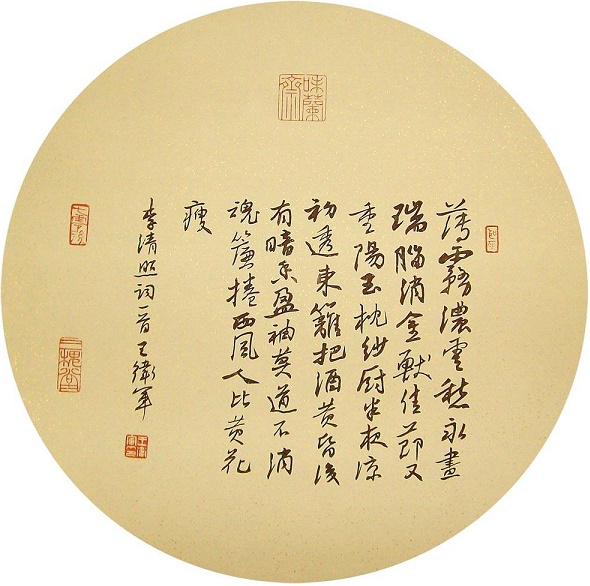 味蘭齋
薄霧濃雲愁永晝
瑞腦消金獸佳節又
重陽玉枕紗厨半夜涼
初透東籬把酒黄昏後
有暗香盈袖莫道不消
魂簾捲西風人比黄花
瘦
李清照詞一首王衛軍
三槐堂